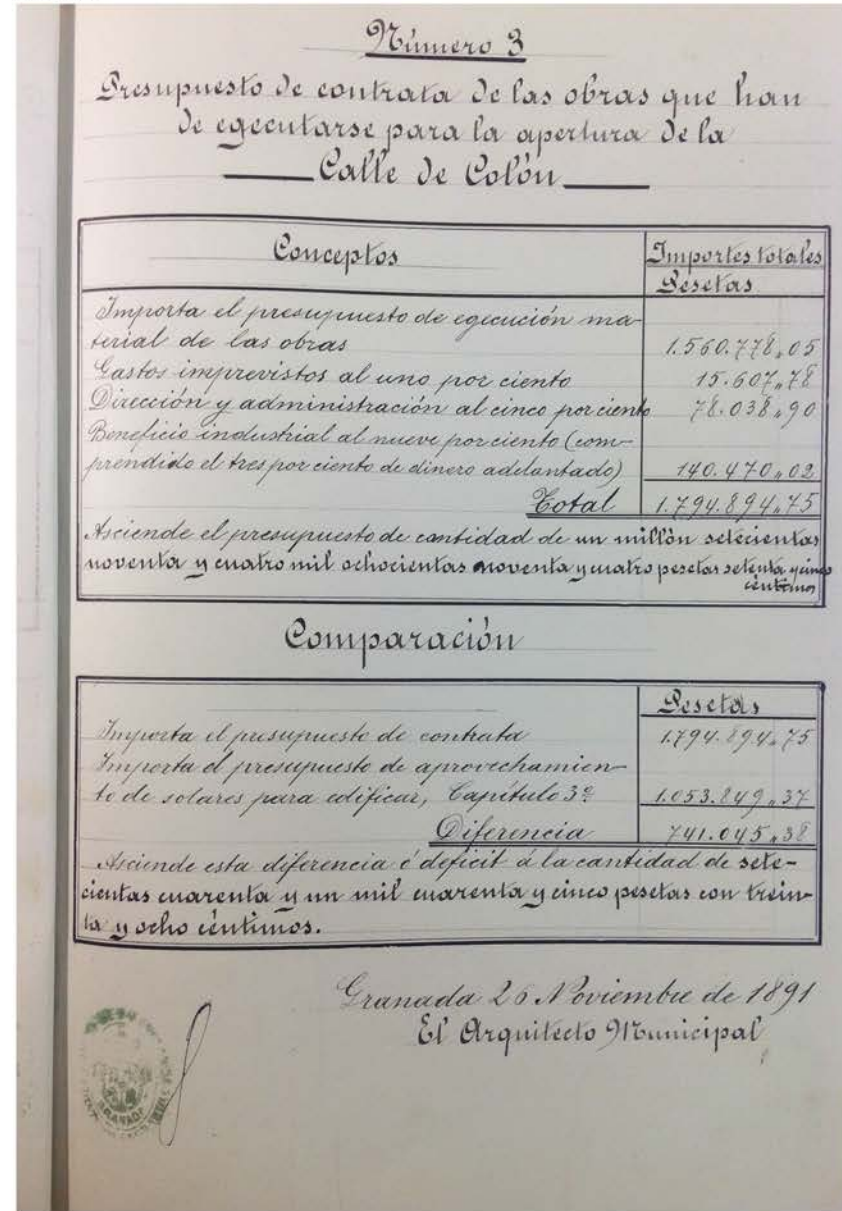 Número 3
Presupuesto de contrata de las obras que han
de egecutarse para la apertura de la
Calle de Colón
Conceptos
Importes totales
Pesetas
Importa el presupuesto de egecución ma-
terial de las obras 1.560.778,,05
Gastos imprevistos al uno por ciento 15.607,,78
Dirección y administración al cinco por ciento 78.038,,90
Beneficio industrial al nueve por ciento (com-
prendido el tres por ciento de dinero adelantado) 140.470,,02
Total 1.794.894,,75
Asciende el presupuesto de cantidad de un millón setecientas
noventa y cuatro mil ochocientas noventa y cuatro pesetas setenta y cinco
céntimos
Comparación
Pesetas
Importa el presupuesto de contrata 1.794.894,,75
Importa el presupuesto de aprovechamien-
to de solares para edificar, Capítulo 3º 1.053.849,,37
Diferencia 741.045,,38
Asciende esta diferencia ó deficit á la cantidad de sete-
cientas cuarenta y un mil cuarenta y cinco pesetas con trein-
ta y ocho céntimos.
Granada 26 Noviembre de 1891
El Arquitecto Municipal
GRANADA